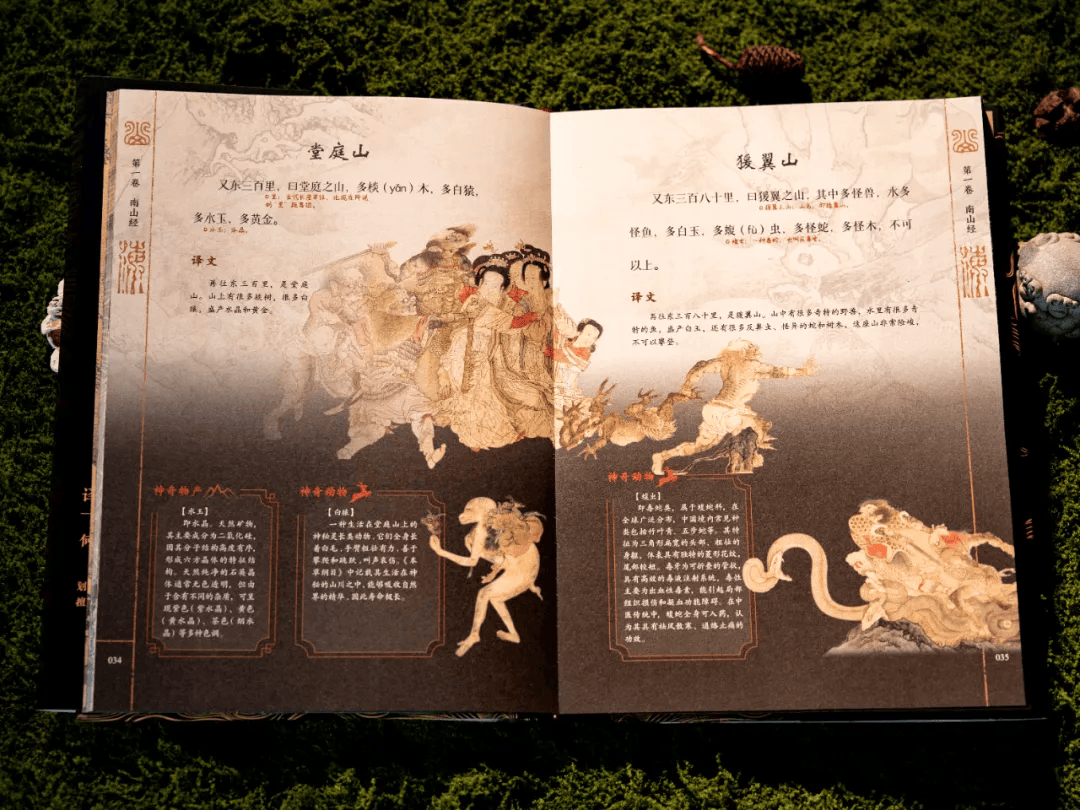 第一卷 南山经
堂庭山
又东三百里，曰堂庭之山，多棪（yǎn）木，多白猿，
多水玉，多黄金。
水玉：水晶。
译文
再往东三百里，是堂庭
山。山上有很多棪树，很多白
猿，盛产水晶和黄金。
神奇物产
【水玉】
即水晶。天然矿物，
其主要成分为二氧化硅，
因其分子结构高度有序，
形成六方晶体的特征结
构。天然纯净的石英晶
体通常无色透明，但由
于含有不同的杂质，可呈
现紫色（紫水晶）、黄色
（黄水晶）、茶色（烟水
晶）等多种色调。
神奇动物
【白猿】
一种生活在堂庭山上的
神秘灵长类动物。它们全身长
着白毛，手臂粗壮有力，善于
攀爬和跳跃，叫声哀伤。《本
草纲目》中记载其生活在神
秘的山川之中，能够吸收自然
界的精华，因此寿命极长。
034
猨翼山
又东三百八十里，曰猨翼之山，其中多怪兽，水多
怪鱼，多白玉，多蝮（fù）虫，多怪蛇，多怪木，不可
以上。
译文
再往东三百八十里，是猨翼山。山中有很多奇特的野兽，水里有很多奇
特的鱼，盛产白玉，还有很多反鼻虫、怪异的蛇和树木。这座山非常险峻，
不可以攀登。
神奇动物
【蝮虫】
即毒蛇类，属于蝰蛇科，在
全球广泛分布，中国境内常见种
类包括竹叶青、五步蛇等。其特
征为三角形扁宽的头部、粗壮的
身躯，体表具有独特的菱形花纹，
尾部较短。毒牙为可折叠的管状，
具有高效的毒液注射系统，毒性
主要为出血性毒素，能引起局部
组织损伤和凝血功能障碍。在中
医传统中，蝮蛇全身可入药，认
为其具有祛风散寒、通络止痛的
功效。
第一卷 南山经
035